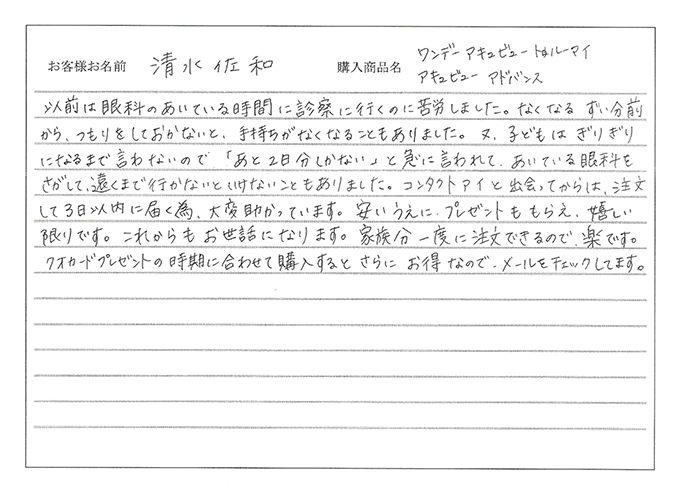 お客様お名前 清水佐和 購入商品名 ワンデー アキュビュー トゥルーアイ
アキュビュー アドバンス
以前は眼科のあいている時間に診察に行くのに苦労しました。なくなる ずい分前
から、つもりをしておかないと、手持ちがなくなることもありました。又、子どもは ぎりぎり
になるまで言わないので「あと2日分しかない」と急に言われて、あいている眼科を
さがして、遠くまで行かないといけないこともありました。コンタクトアイと出会ってからは、注文
して3日以内に届く為、大変助かっています。安いうえに、プレゼントももらえ、嬉しい
限りです。これからも お世話になります。家族分 一度に注文できるので、楽です。
クオカードプレゼントの時期に合わせて購入すると さらに お得なので、メールをチェックしてます。